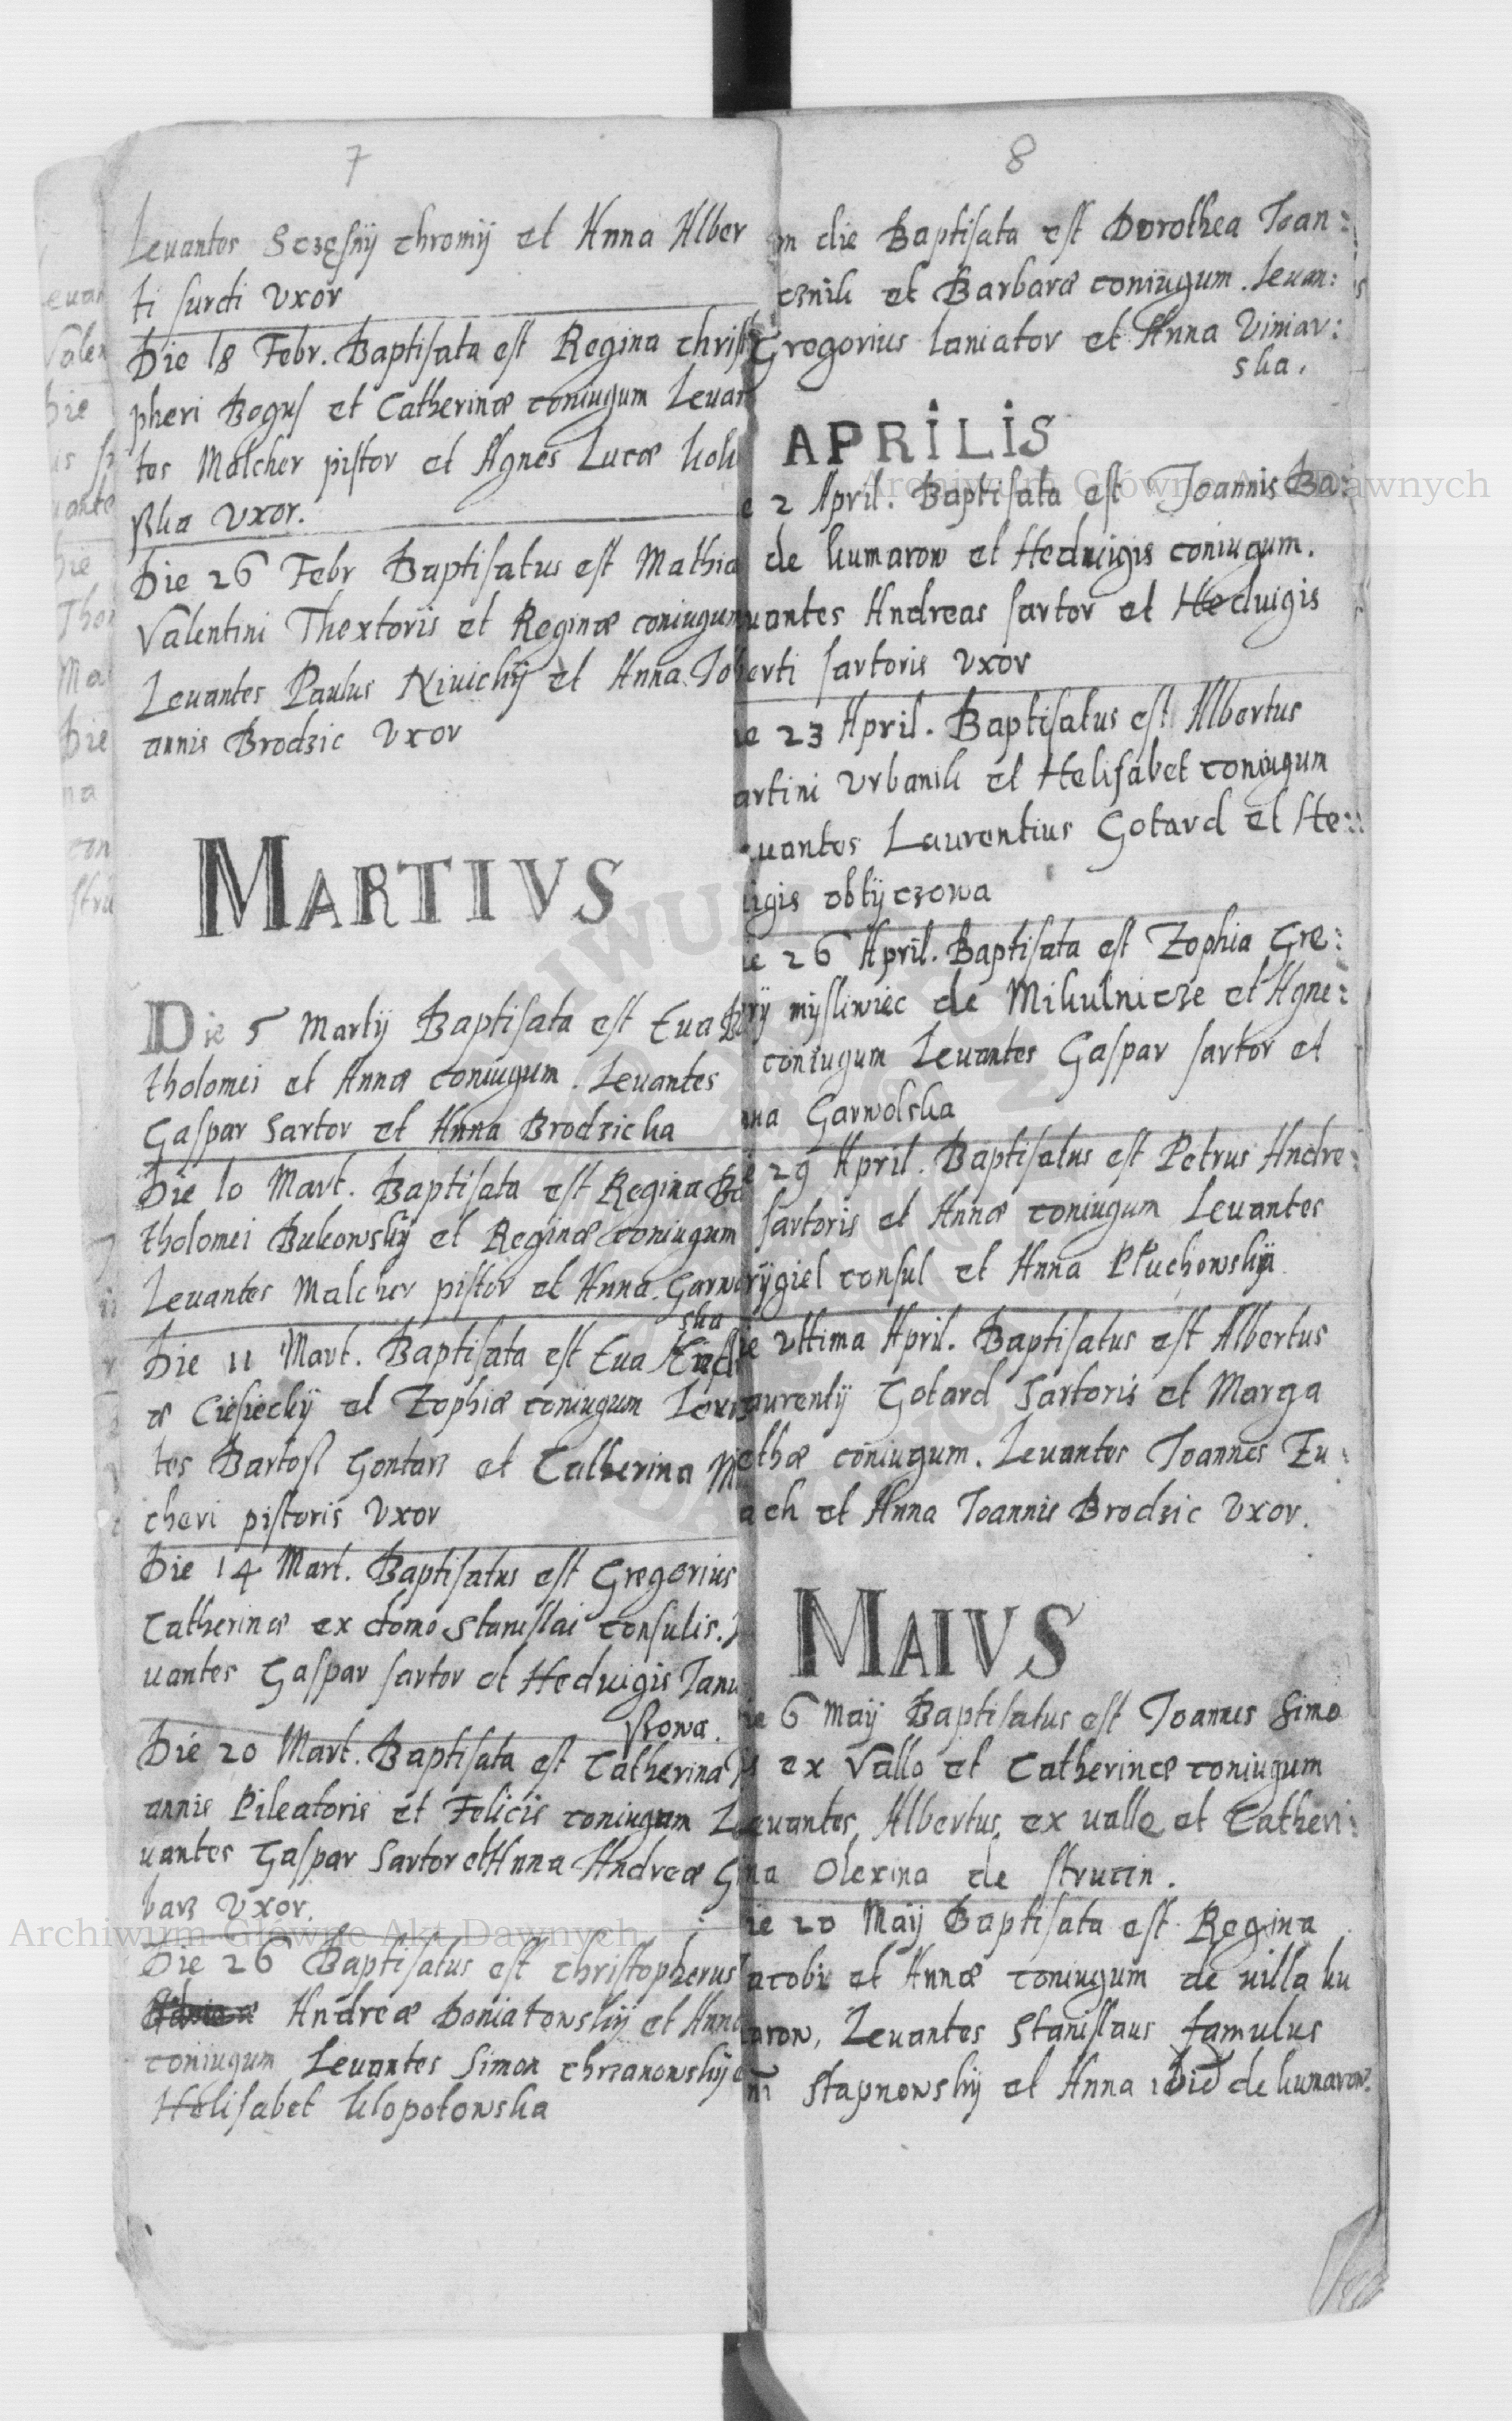 7
Levantes Sczęsnÿ chromÿ et Anna Alber
ti surdi Vxor
Die 18 Febr. Baptisata est Regina christ
pheri Bogus et Catherinæ coniugum Levan
tes Malcher pistor et Agnes Lucæ
Vxor.
Die 26 Febr Baptisatus est Mathia
Valentini Thextoris et Reginæ coniugum
Levantes Paulus Nivickÿ et Anna Jo
annis Brodzic Vxor
MARTIVS
Die 5 Martÿ Baptisata est Eva
tholomei et Annæ coniugum. Levantes
Gaspar Sartor et Anna Brodzicka
Die 10 Mart. Baptisata est Regina Ba
tholomei Bukowskÿ et Reginæ coniugum
Levantes Malcher pistor et Anna Garwo
ska
Die 11 Mart. Baptisata est Eva
æ Ciesieckÿ et Zophiæ coniugum Levan
tes Bartosz Gontarz et Catherina
cheri pistoris Vxor
Die 14 Mart. Baptisatus est Gregorius
Catherinæ ex domo Stanislai consulis.
vantes Gaspar sartor et Hedvigis Janu
szowa.
Die 20 Mart. Baptisata est Catherina
annis Pileatoris et Felicis coniugum Le
vantes Gaspar Sartor et Anna Andreæ
barz Vxor.
Die 26 Baptisatus est christopherus
Andreæ Poniatowskÿ et Anna
coniugum Levantes Simon chrzanowskÿ
Helisabet klopotowska
8
m die Baptisata est Dorothea Joan:
cznik et Barbaræ coniugum. Levan:
Gregorius laniator et Anna Viniar:
ska.
APRILIS
e 2 April. Baptisata est Joannis Ba:
de kumarow et Hedwigis coniugum.
vantes Andreas sartor et Hedvigis
berti sartoris Vxor
ie 23 April. Baptisatus est Albertus
artini Vrbanik et Helisabet coniugum
vantes Laurentius Gotard et He::
igis obtÿczowa
ie 26 April. Baptisata est Zophia Gre:
rÿ mÿsliwiec de Mikulnicze et Agne:
coniugum Levantes Gaspar sartor et
na Garwolska
e 29 April. Baptisatus est Petrus Andre:
sartoris et Annæ coniugum Levantes
rÿgiel consul et Anna Płuchowskÿ
ie vltima April. Baptisatus est Albertus
aurentÿ Gotard Sartoris et Marga
ethæ coniugum. Levantes Joannes Eu:
ach et Anna Joannis Brodzic Vxor.
MAIVS
ie 6 Maÿ Baptisatus est Joannes Simo
ex Vallo et Catherinæ coniugum
evantes Albertus ex vallo et Catheri:
na Olexina de strucin.
ie 20 Maÿ Baptisata est Regina
acobi et Annæ coniugum de villa ku
aron, Levantes Stanislaus famulus
ni stapnowskÿ et Anna ibid de kumarow.
Archiwum Główne Akt Dawnych
Archiwum Główne Akt Dawnych